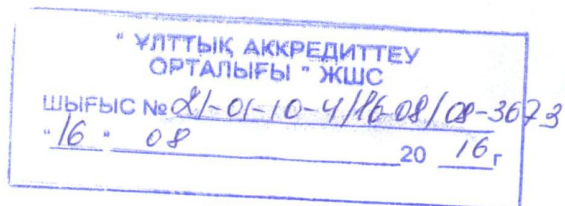 " ҰЛТТЫҚ АККРЕДИТТЕУ
ОРТАЛЫҒЫ " ЖШС
ШЫҒЫС № 21-01-10-4/16-08/08-3673
" 16 " 08 20 16 г